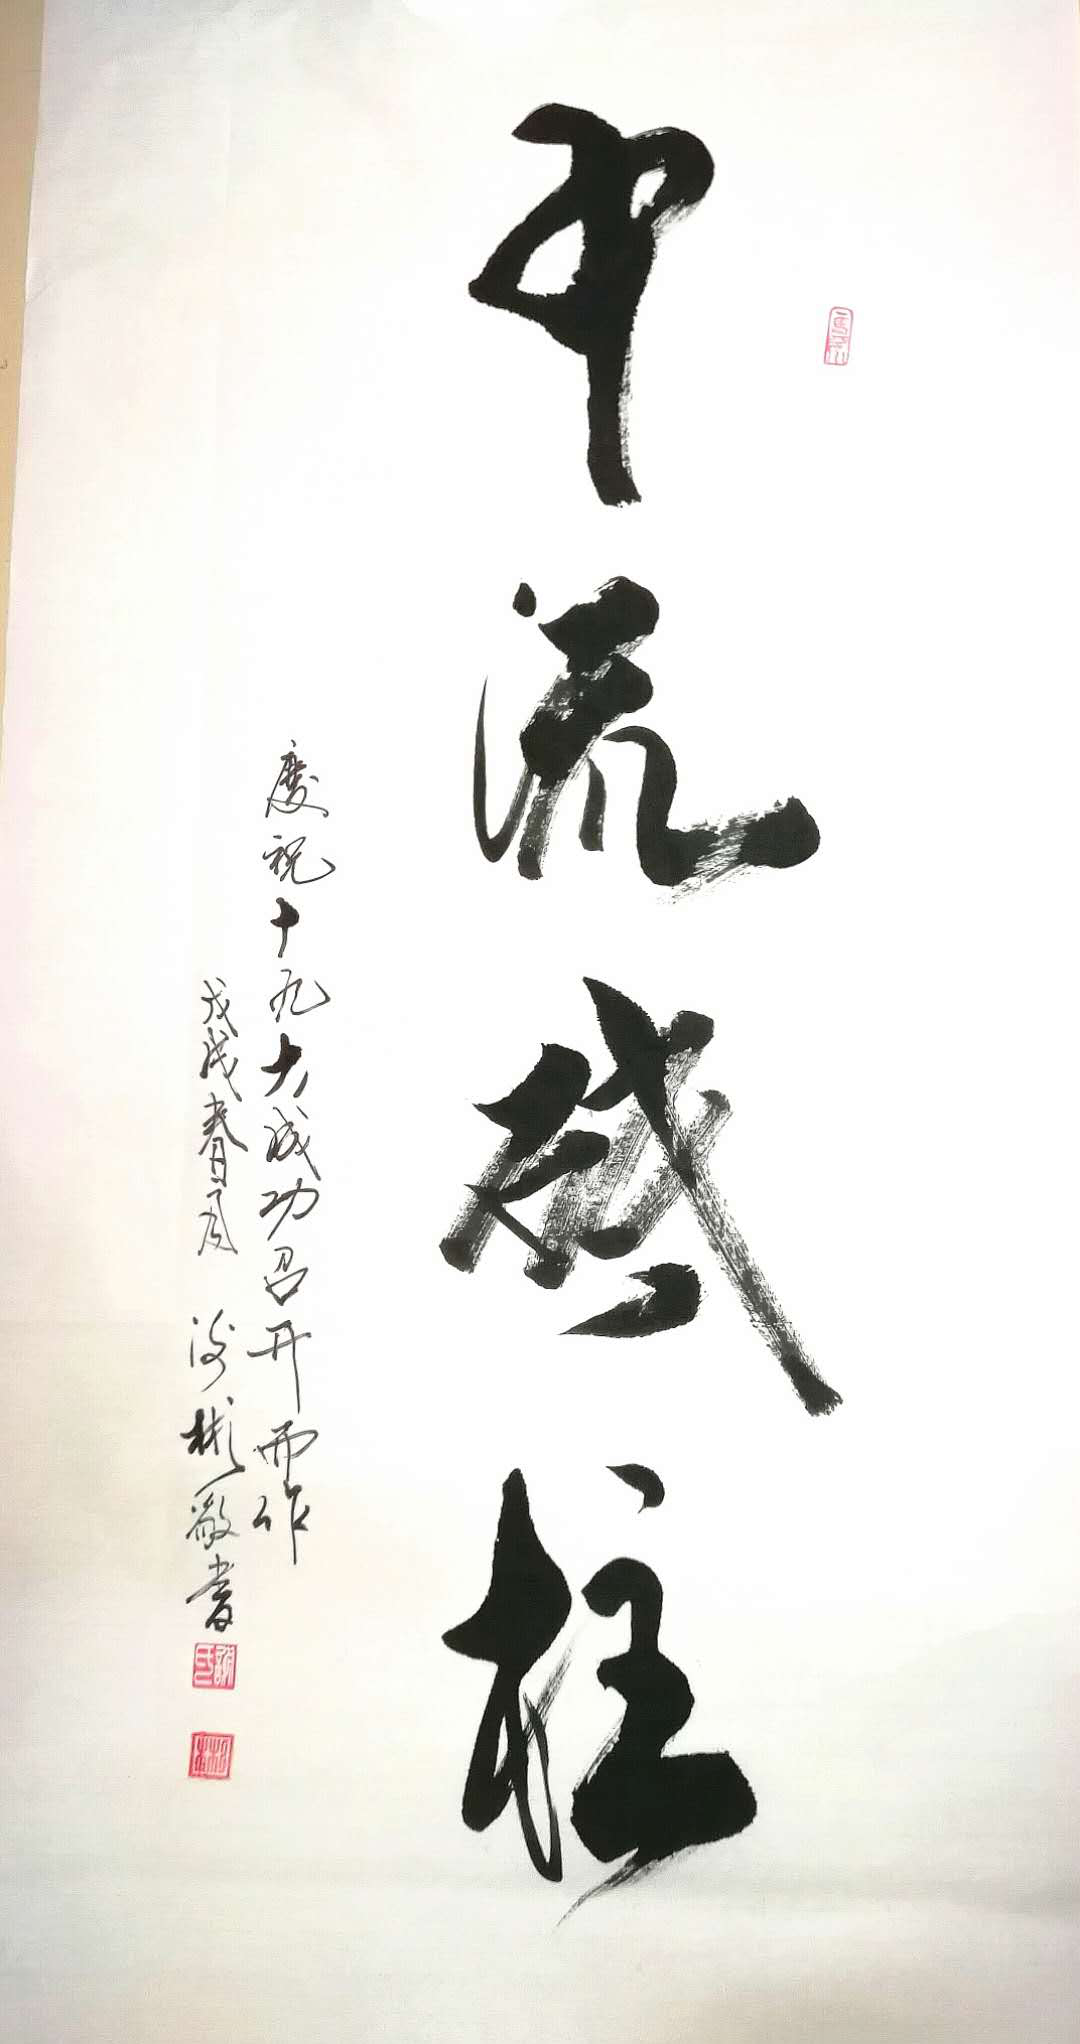 中流砥柱
慶祝十九大成功召开而作
戊戌春月 彬敬书